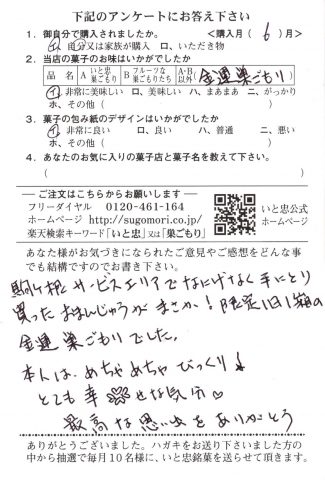 下記のアンケートにお答え下さい
1. 御自分で購入されましたか。 <購入月( 6 )月>
イ、自分又は家族が購入 ロ、いただき物
2. 当店の菓子のお味はいかがでしたか
品名 A いと忠巣ごもり B フルーツな巣ごもりたち A・B以外( 金運巣ごもり )
イ、非常に美味しい ロ、美味しい ハ、まあまあ ニ、がっかり
ホ、その他( )
3. 菓子の包み紙のデザインはいかがでしたか
イ、非常に良い ロ、良い ハ、普通 ニ、悪い
ホ、その他( )
4. あなたのお気に入りの菓子店と菓子名を教えて下さい。
( )
ご注文はこちらからお願いします
フリーダイヤル 0120-461-164
ホームページ http://sugomori.co.jp/
楽天検索キーワード「いと忠」又は「巣ごもり」
いと忠公式
ホームページ
あなた様がお気づきになられたご意見やご感想をどんな事
でも結構ですのでお書き下さい。
駒ヶ根サービスエリアでなにげなく手にとり
買ったおまんじゅうがまさか!限定1日1箱の
金運巣ごもりでした。
本人は、めちゃめちゃびっくり!
とても幸せな気分♡
最高な思い出をありがとう
ありがとうございました。ハガキをお送り下さいました方の
中から抽選で毎月10名様に、いと忠銘菓を送らせて頂きます。